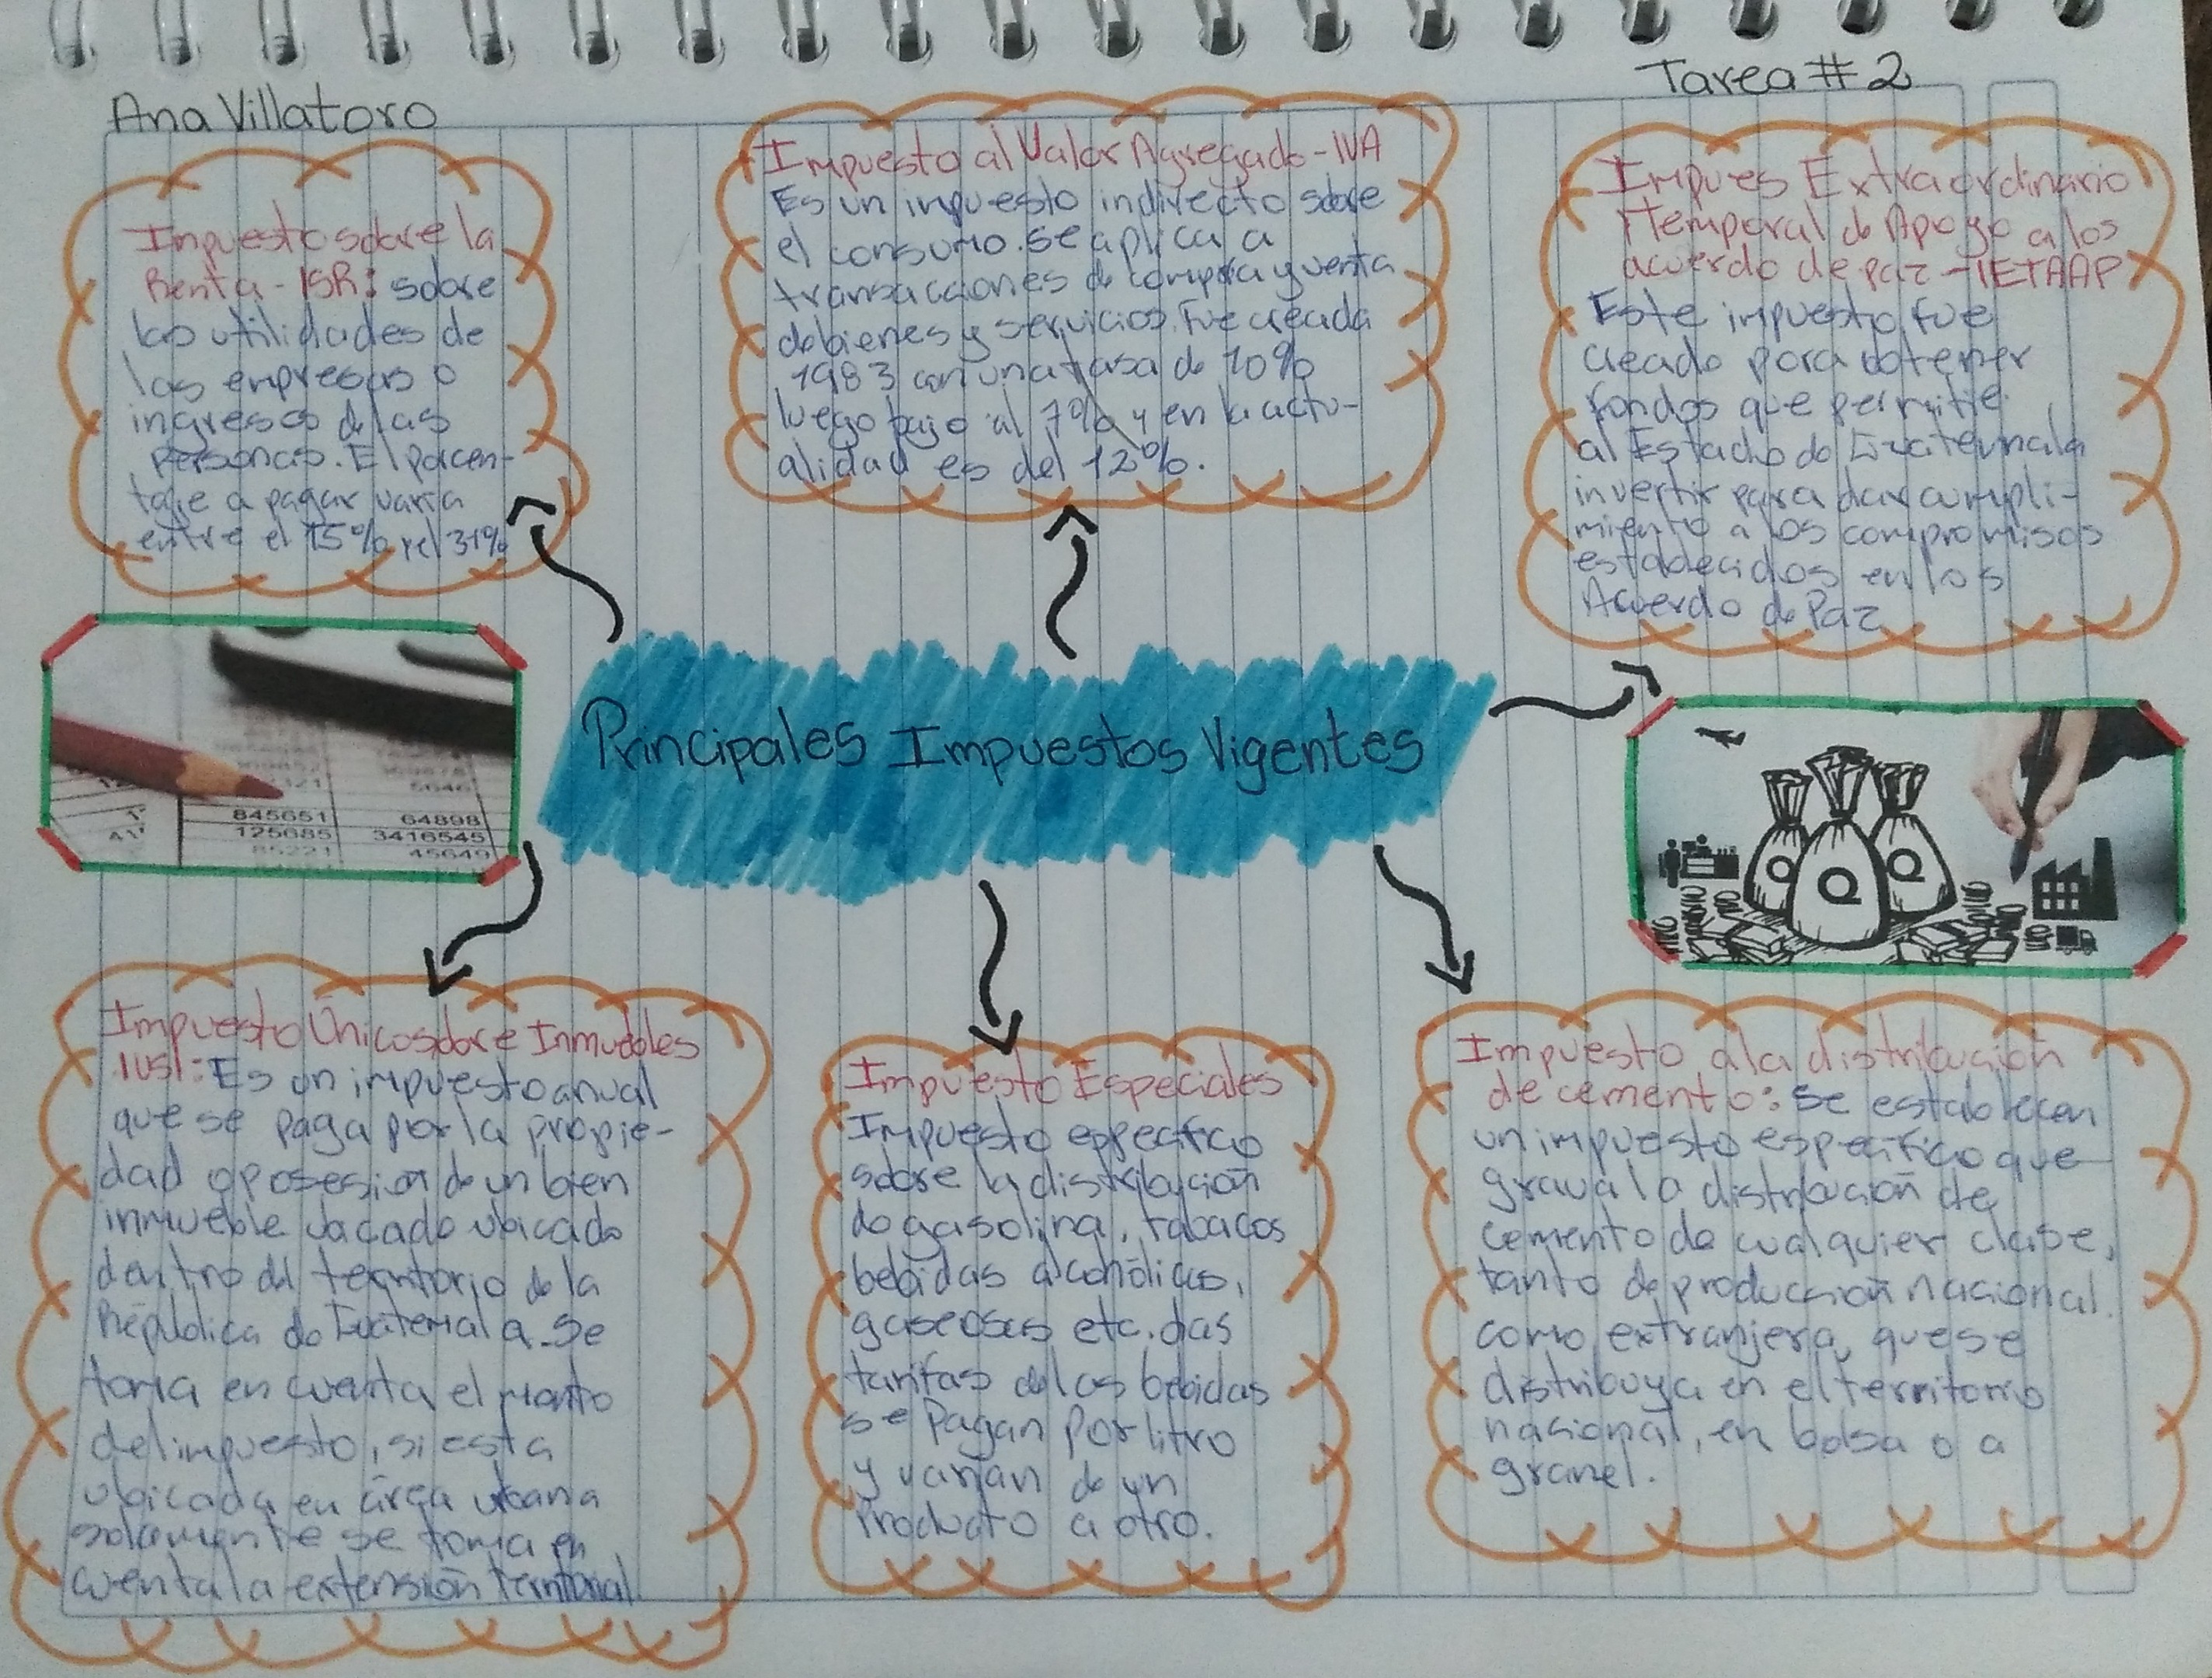 Ana Villatoro
Tarea #2
Impuesto sobre la
Renta - ISR: sobre
las utilidades de
las empresas o
ingresos de las
personas. El porcen-
taje a pagar varia
entre el 15% y el 31%
Impuesto al Valor Agregado - IVA
Es un impuesto indirecto sobre
el consumo. se aplica a
transacciones de compra y venta
de bienes y servicios. Fue creada
1983 con una tasa de 10%
luego bajo al 7% y en la actu-
alidad es del 12%.
Impues Extraordinario
Temporal de Apoyo a los
acuerdo de paz - IETAAP
Este impuesto fue
creado para obtener
fondos que permitie
al Estado de Guatemala
invertir para dar cumpli-
miento a los compromisos
establecidos en los
Acuerdo de Paz
Principales Impuestos Vigentes
845651 64898
125685 3416545
85221 45649
Q Q Q
Impuesto Único sobre Inmuebles
IUSI: Es un impuesto anual
que se paga por la propie-
dad o posesión de un bien
inmueble ubicado
dentro del territorio de la
República de Guatemala. Se
toma en cuenta el monto
del impuesto, si esta
ubicada en área urbana
solamente se toma en
cuenta la extensión territorial
Impuesto Especiales
Impuesto especifico
sobre la distribución
de gasolina, tabacos
bebidas alcohólicas,
gaseosas etc. las
tarifas de las bebidas
se Pagan Por litro
y varían de un
Producto a otro.
Impuesto a la distribución
de cemento: se establecen
un impuesto específico que
grava la distribución de
cemento de cualquier clase,
tanto de producción nacional.
como extranjera, que se
distribuya en el territorio
nacional, en bolsa o a
granel.